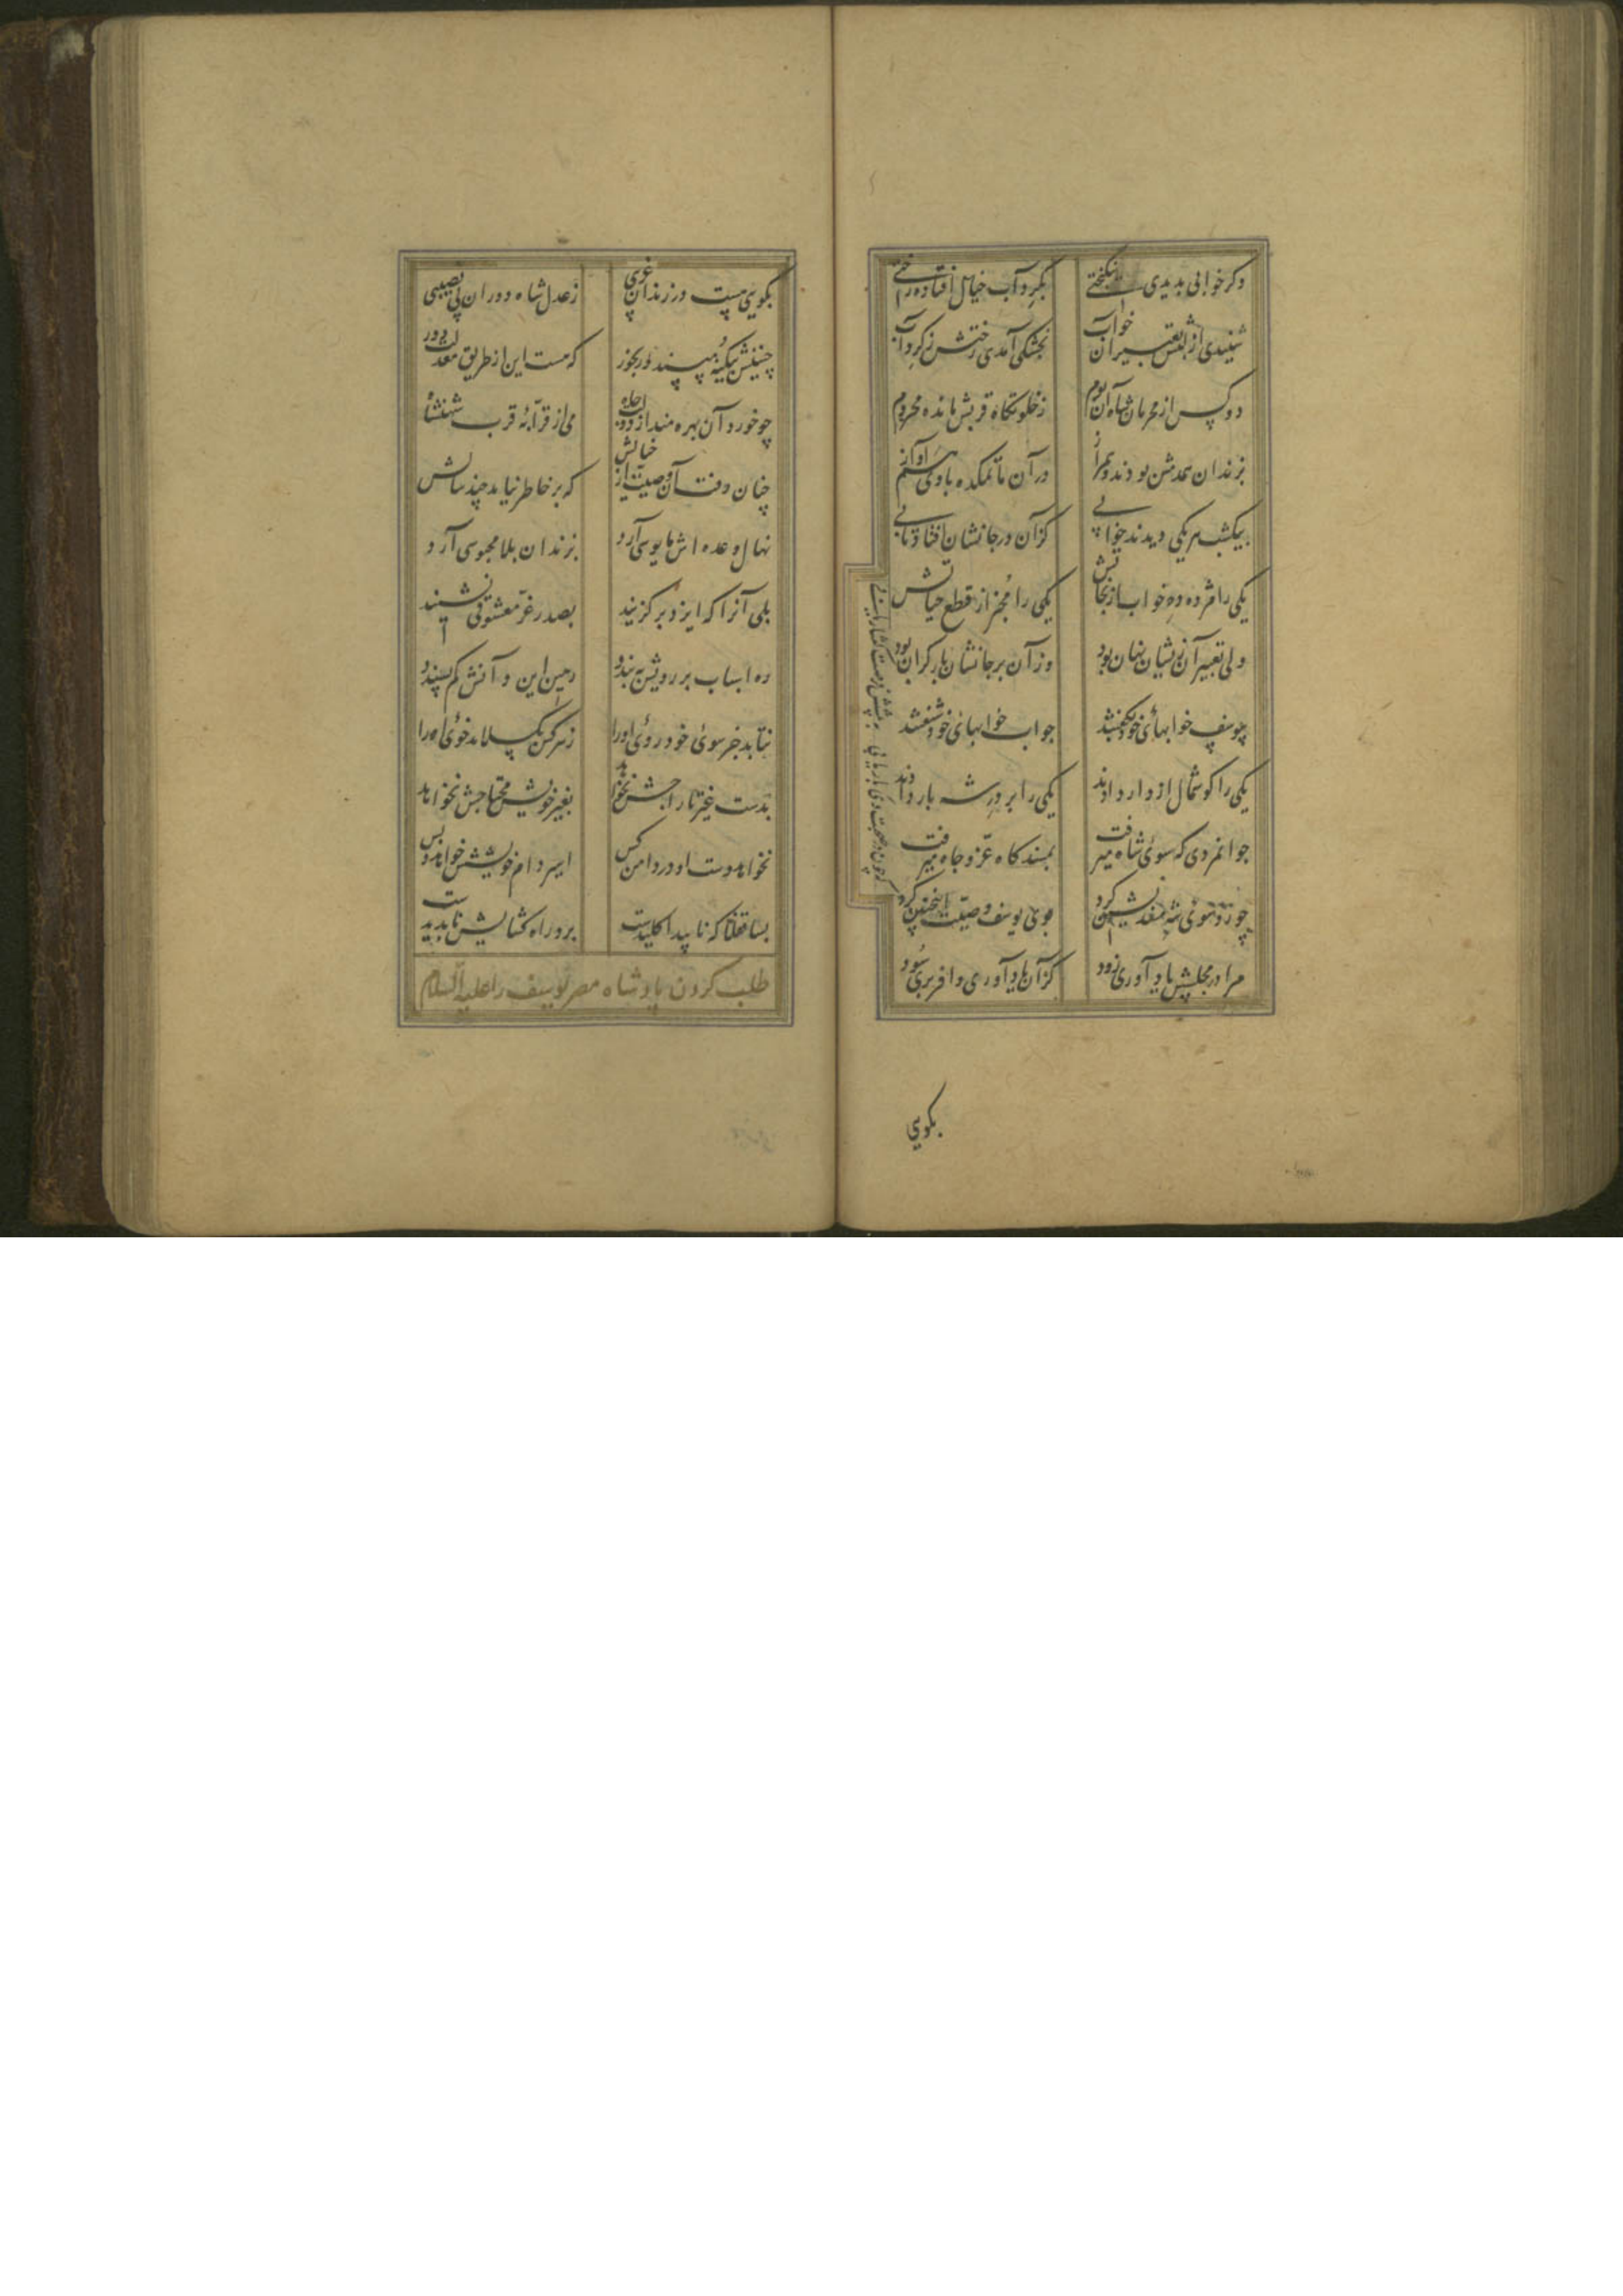 وکر خوابی بدیدی نیکبختی بکرداب خیال افتاده رختی
شنیدی از لبش تعبیر آن خواب بخشکی آمدی رختش ز کرداب
دو کس از محرمان شاه آن بوم ز خلوتکاه قربش مانده محروم
بزندان همدمش بودند و همراز در آن ماتمکده با وی هم آواز
بیکشب هر یکی دیدند خوابی کزآن در جانشان افتاد تابی
یکی را مژده ده خواب از نجاتش یکی را مخبر از قطع حیاتش
ولی تعبیر آن زیشان نهان بود وزآن بر جانشان بار کران بود
بیوسف خوابهای خود بکفتند جواب خوابهای خود شنفتند
یکی را کوشمال از دار دادند یکی را بر در شه بار دادند
جوانمردی که سوی شاه میرفت بمسندکاه عز و جاه میرفت
چو رو سوی شه مسندنشین کرد بوی یوسف وصیت اینچنین کرد
که چون در صحبت وی بار یابی به پیشش فرصت کفتار یابی
مرا در مجلسش یاد آوری زود کزآن یاد آوری وافر بری سود
بکویی
بکویی هست در زندان غریبی ز عدل شاه دوران بی نصیبی
چنینش بیکنه مپسند رنجور که هست این از طریق معدلت دور
چو خورد آن بهره مند از دولت و جاه می از قرابه قرب شهنشاه
چنان رفت آن وصیت از خیالش که بر خاطر نیامد چند سالش
نهال وعده اش مایوسی آرد بزندان بلا محبوسی آرد
بلی آنرا که ایزد برکزیند بصدر عز معشوقی نشیند
ره اسباب بر رویش ببندد رهین این و آنش کم پسندد
نتابد جز سوی خود روی او را ز هر کس بکسلاند خوی او را
بدست غیر تاراجش نخواهد بغیر خویش محتاجش نخواهد
نخواهد دست او در دامن کس اسیر دام خویشش خواهد و بس
بسا قفلا که ناپیدا کلیدست برو راه کشایش ناپدیدست
طلب کردن پادشاه مصر یوسف را علیه السلام